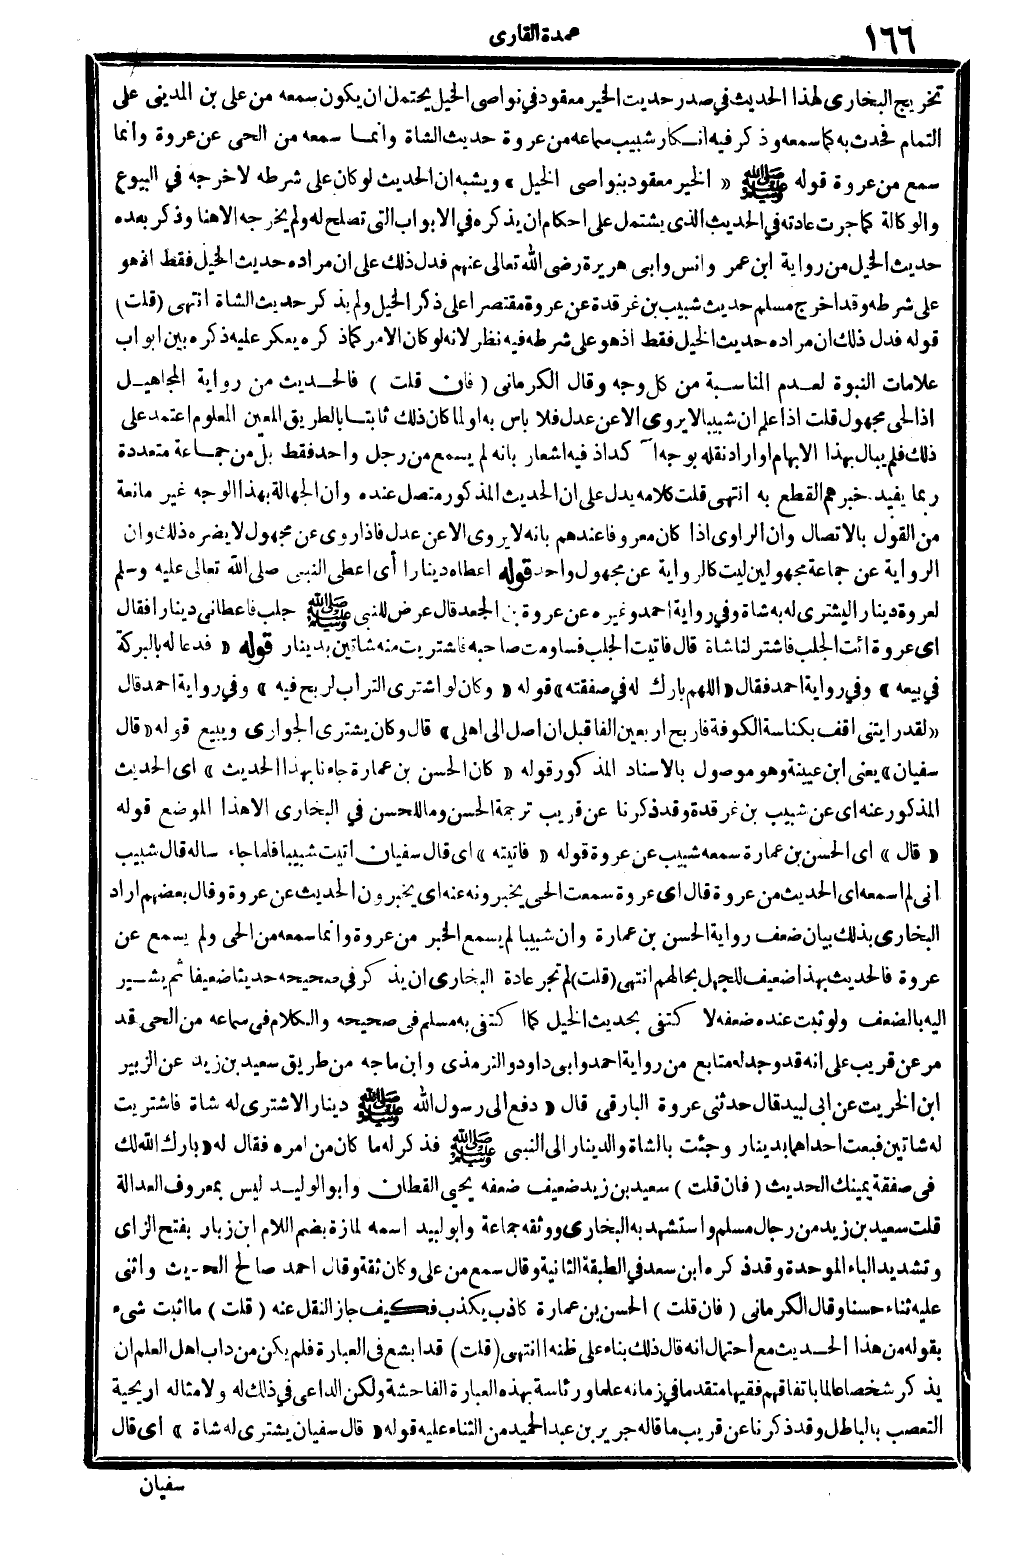 ١٦٦
عمدة القارى
تخريج البخارى لهذا الحديث في صدر حديث الخير معقود في نواصى الخيل يحتمل ان يكون سمعه من على بن المدينى على
التمام فحدث به كما سمعه وذكر فيه انكار شبيب سماعه من عروة حديث الشاة وانما سمعه من الحى عن عروة وانما
سمع من عروة قوله ﷺ « الخير معقود بنواصى الخيل » ويشبه ان الحديث لو كان على شرطه لاخرجه في البيوع
والوكالة كما جرت عادته في الحديث الذى يشتمل على احكام ان يذكره في الابواب التى تصلح له ولم يخرجه الاهنا وذكر بعده
حديث الخيل من رواية ابن عمر وانس وابى هريرة رضى الله تعالى عنهم فدل ذلك على ان مراده حديث الخيل فقط اذ هو
على شرطه وقد اخرج مسلم حديث شبيب بن غرقدة عن عروة مقتصرا على ذكر الخيل ولم يذكر حديث الشاة انتهى (قلت)
قوله فدل ذلك ان مراده حديث الخيل فقط اذ هو على شرطه فيه نظر لانه لو كان الامر كماذكره يعكر عليه ذكره بين ابواب
علامات النبوة لعدم المناسبة من كل وجه وقال الكرمانى ( فان قلت ) فالحديث من رواية المجاهيل
اذ الحى مجهول قلت اذا علم ان شبيبا لايروى الا عن عدل فلا باس به او لما كان ذلك ثابتا بالطريق المعين المعلوم اعتمد على
ذلك فلم يبال بهذا الابهام او اراد نقله بوجه آكد اذ فيه اشعار بانه لم يسمع من رجل واحد فقط بل من جماعة متعددة
ربما يفيد خبرهم القطع به انتهى قلت كلامه يدل على ان الحديث المذكور متصل عنده وان الجهالة بهذا الوجه غير مانعة
من القول بالاتصال وان الراوى اذا كان معروفا عندهم بانه لا يروى الا عن عدل فاذا روى عن مجهول لا يضره ذلك وان
الرواية عن جماعة مجهولين ليت كالرواية عن مجهول واحد قوله اعطاه دينارا أى اعطى النبي صلى الله تعالى عليه وسلم
لعروة دينار اليشترى له به شاة وفي رواية احمد وغيره عن عروة بن الجعد قال عرض للنبي ﷺ جلب فاعطانى دينارا فقال
اى عروة ائت الجلب فاشتر لنا شاة قال فاتيت الجلب فساومت صاحبه فاشتريت منه شاتين بدينار قوله « فدعا له بالبركة
في بيعه » وفي رواية احمد فقال «اللهم بارك له في صفقته» قوله « وكان لو اشترى التراب لربح فيه » وفي رواية احمد قال
«لقد رايتنى اقف بكناسة الكوفة فاربح اربعين الفا قبل ان اصل الى اهلى» قال وكان يشترى الجوارى ويبيع قوله «قال
سفيان» يعنى ابن عيينة وهو موصول بالاسناد المذكور قوله « كان الحسن بن عمارة جاءنا بهذا الحديث » اى الحديث
المذكور عنه اى عن شبيب بن غرقدة وقد ذكرنا عن قريب ترجمة الحسن وما للحسن في البخارى الا هذا الموضع قوله
« قال » اى الحسن بن عمارة سمعه شبيب عن عروة قوله « فاتيته » اى قال سفيان اتيت شبيبا فلما جاء ساله قال شبيب
انى لم اسمعه اى الحديث من عروة قال اى عروة سمعت الحى يخبرونه عنه اى يخبرون الحديث عن عروة وقال بعضهم اراد
البخارى بذلك بيان ضعف رواية الحسن بن عمارة وان شبيبا لم يسمع الخبر من عروة وانما سمعه من الحى ولم يسمع عن
عروة فالحديث بهذا ضعيف للجهل بحالهم انتهى (قلت) لم تجر عادة البخارى ان يذكر في صحيحه حديثا ضعيفا ثم يشير
اليه بالضعف ولو ثبت عنده ضعفه لاكتفى بحديث الخيل كما اكتفى به مسلم فى صحيحه والكلام فى سماعه من الحى قد
مر عن قريب على انه قد وجد له متابع من رواية احمد وابى داود والترمذى وابن ماجه من طريق سعيد بن زيد عن الزبير
ابن الخريت عن ابى لبيد قال حدثنى عروة البارقى قال « دفع الى رسول الله ﷺ دينار الاشترى له شاة فاشتريت
له شاتين فبعت احداهما بدينار وجئت بالشاة والدينار الى النبى ﷺ فذكر له ما كان من امره فقال له « بارك الله لك
فى صفقة يمينك الحديث ( فان قلت ) سعيد بن زيد ضعيف ضعفه يحيى القطان وابو الوليد ليس بمعروف العدالة
قلت سعيد بن زيد من رجال مسلم واستشهد به البخارى ووثقه جماعة وابو لبيد اسمه لمازة بضم اللام ابن زبار بفتح الزاى
وتشديد الباء الموحدة وقد ذكره ابن سعد في الطبقة الثانية وقال سمع من على وكان ثقة وقال احمد صالح الحديث واثنى
عليه ثناء حسنا وقال الكرمانى ( فان قلت ) الحسن بن عمارة كاذب يكذب فكيف جاز النقل عنه ( قلت ) ما اثبت شيء
بقوله من هذا الحديث مع احتمال انه قال ذلك بناء على ظنه انتهى (قلت) قد ابشع فى العبارة فلم يكن من داب اهل العلم ان
يذكر شخصا عالما باتفاقهم فقيها متقدما في زمانه علما ورئاسة بهذه العبارة الفاحشة ولكن الداعى في ذلك له ولامثاله اريحية
التعصب بالباطل وقد ذكرنا عن قريب ما قاله جرير بن عبد الحميد من الثناء عليه قوله « قال سفيان يشترى له شاة » اى قال
سفيان